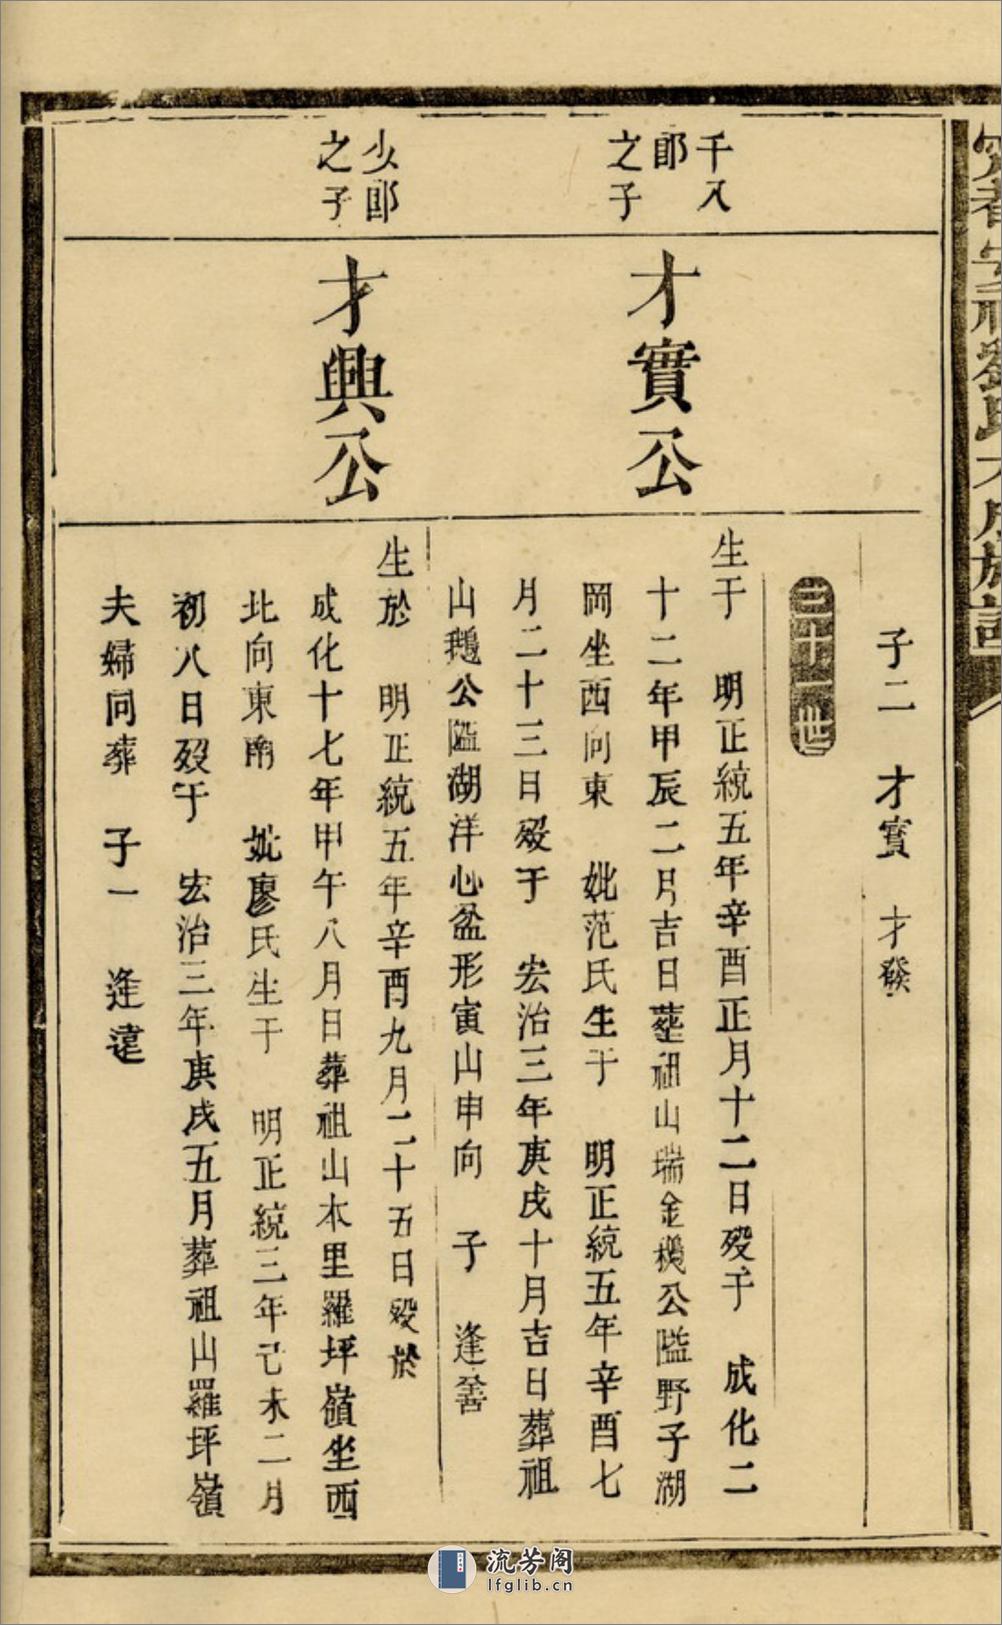 子二 才實 才發
三十一世
千八
郎
之子
才實公
生于 明正統五年辛酉正月十二日殁于 成化二
十二年甲辰二月吉日塟祖山瑞金機公隘野子湖
岡坐西向東 妣范氏生于 明正統五年辛酉七
月二十三日殁于 宏治三年庚戌十月吉日葬祖
山鵝公隘湖洋心盆形寅山申向 子 逢善
少郎
之子
才興公
生於 明正統五年辛酉九月二十五日殁於
成化十七年甲午八月日葬祖山本里羅坪嶺坐西
北向東南 妣廖氏生于 明正統三年己未二月
初八日殁于 宏治三年庚戌五月葬祖山羅坪嶺
夫婦同葬 子一 逢遠
流芳阁
lfglib.cn